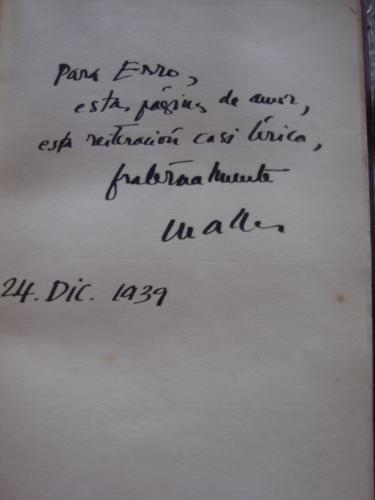 Para Erro,
estas páginas de amor,
esta reiteración casi lírica,
fraternalmente
Mallea
24. Dic. 1939